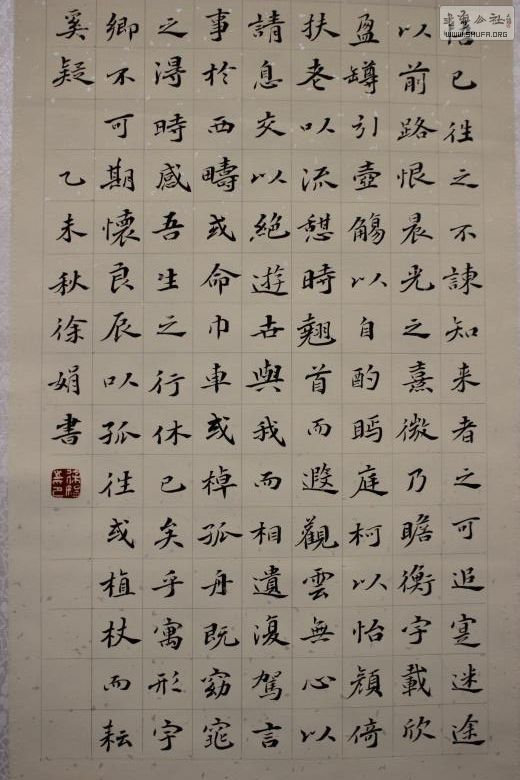 悟已往之不諫知来者之可追寔迷途
以前路恨晨光之熹微乃瞻衡宇載欣
盈罇引壺觴以自酌眄庭柯以怡顏倚
扶老以流憩時翹首而遐觀雲無心以
請息交以絕遊古與我而相遺復駕言
事於西疇或命巾車或棹孤舟既窈窕
之淂時感吾生之行休已矣乎寓形宇
卿不可期懷良辰以孤往或植杖而耘
奚疑 乙未秋徐娟書
公社
WWW.SHUFA.ORG